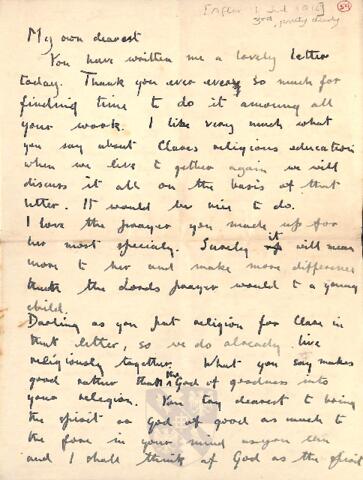 [After 1 Jul 1916]
My own dearest
You have written me a lovely letter
today. Thank you ever every so much for
finding time to do it among all
your work. I like very much what
you say about Clares religious education
when we live to gether again we will
discuss it all on the basis of that
letter. It would be nice to do.
I love the prayer you made up for
her most specialy. Surely it will mean
more to her and make more difference
than the Lords prayer would to a young
child.
Darling as you put religion for Clare in
that letter, so we do already live
religiously together. What you say makes
good rather than the God of goodness into
your religion. You try dearest to bring
the spirit or God of good as much to
the fore in your mind as you can
and I shall think of God as the spirit